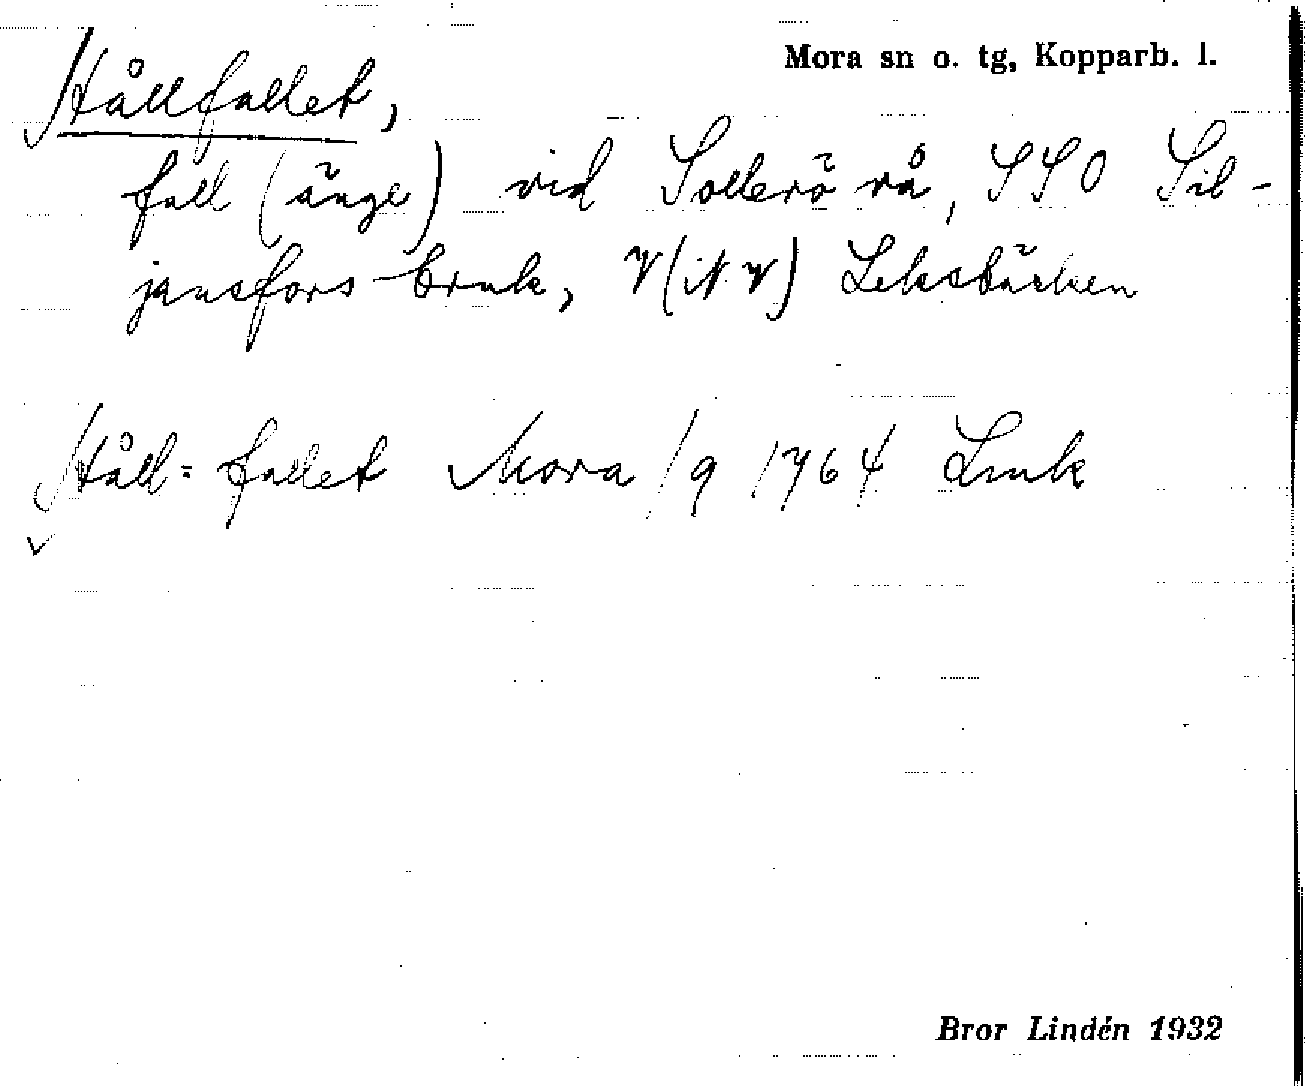 Mora sn o. tg, Kopparb. l.
Hållfallet,
fall (änge) vid Sollerö rå, SSO Sil-
jansfors bruk, V(NV) Leksbäcken
Håll=fallet Mora /9 1764 Lmk
Bror Lindén 1932